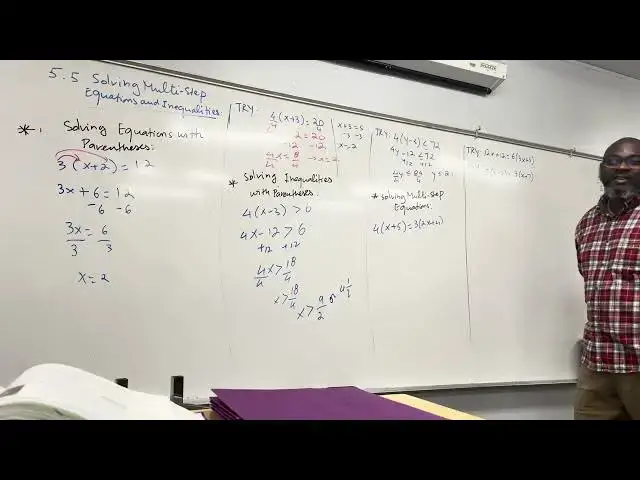 5.5 Solving Multi-Step
Equations and Inequalities
* 1 Solving Equations with
Parentheses:
3(x+2)=12
3x+6=12
-6 -6
3x = 6
3 3
x=2
TRY:
4(x+3)=20
4 4
x+3=5
-3 -3
x=2
2=20
-12 -12
4x=8
4 4
→ x=2
* Solving Inequalities
with Parentheses:
4(x-3)>6
4x-12>6
+12 +12
4x>18
4 4
x>18
4
x>9
2
or 4 1
2
TRY: 4(y-3)≤72
4y-12≤72
+12 +12
4y≤84
4 4
* Solving Multi-Step
Equations:
4(x+5)=3(2x+4)
TRY: 12x+12=6(3x+3)